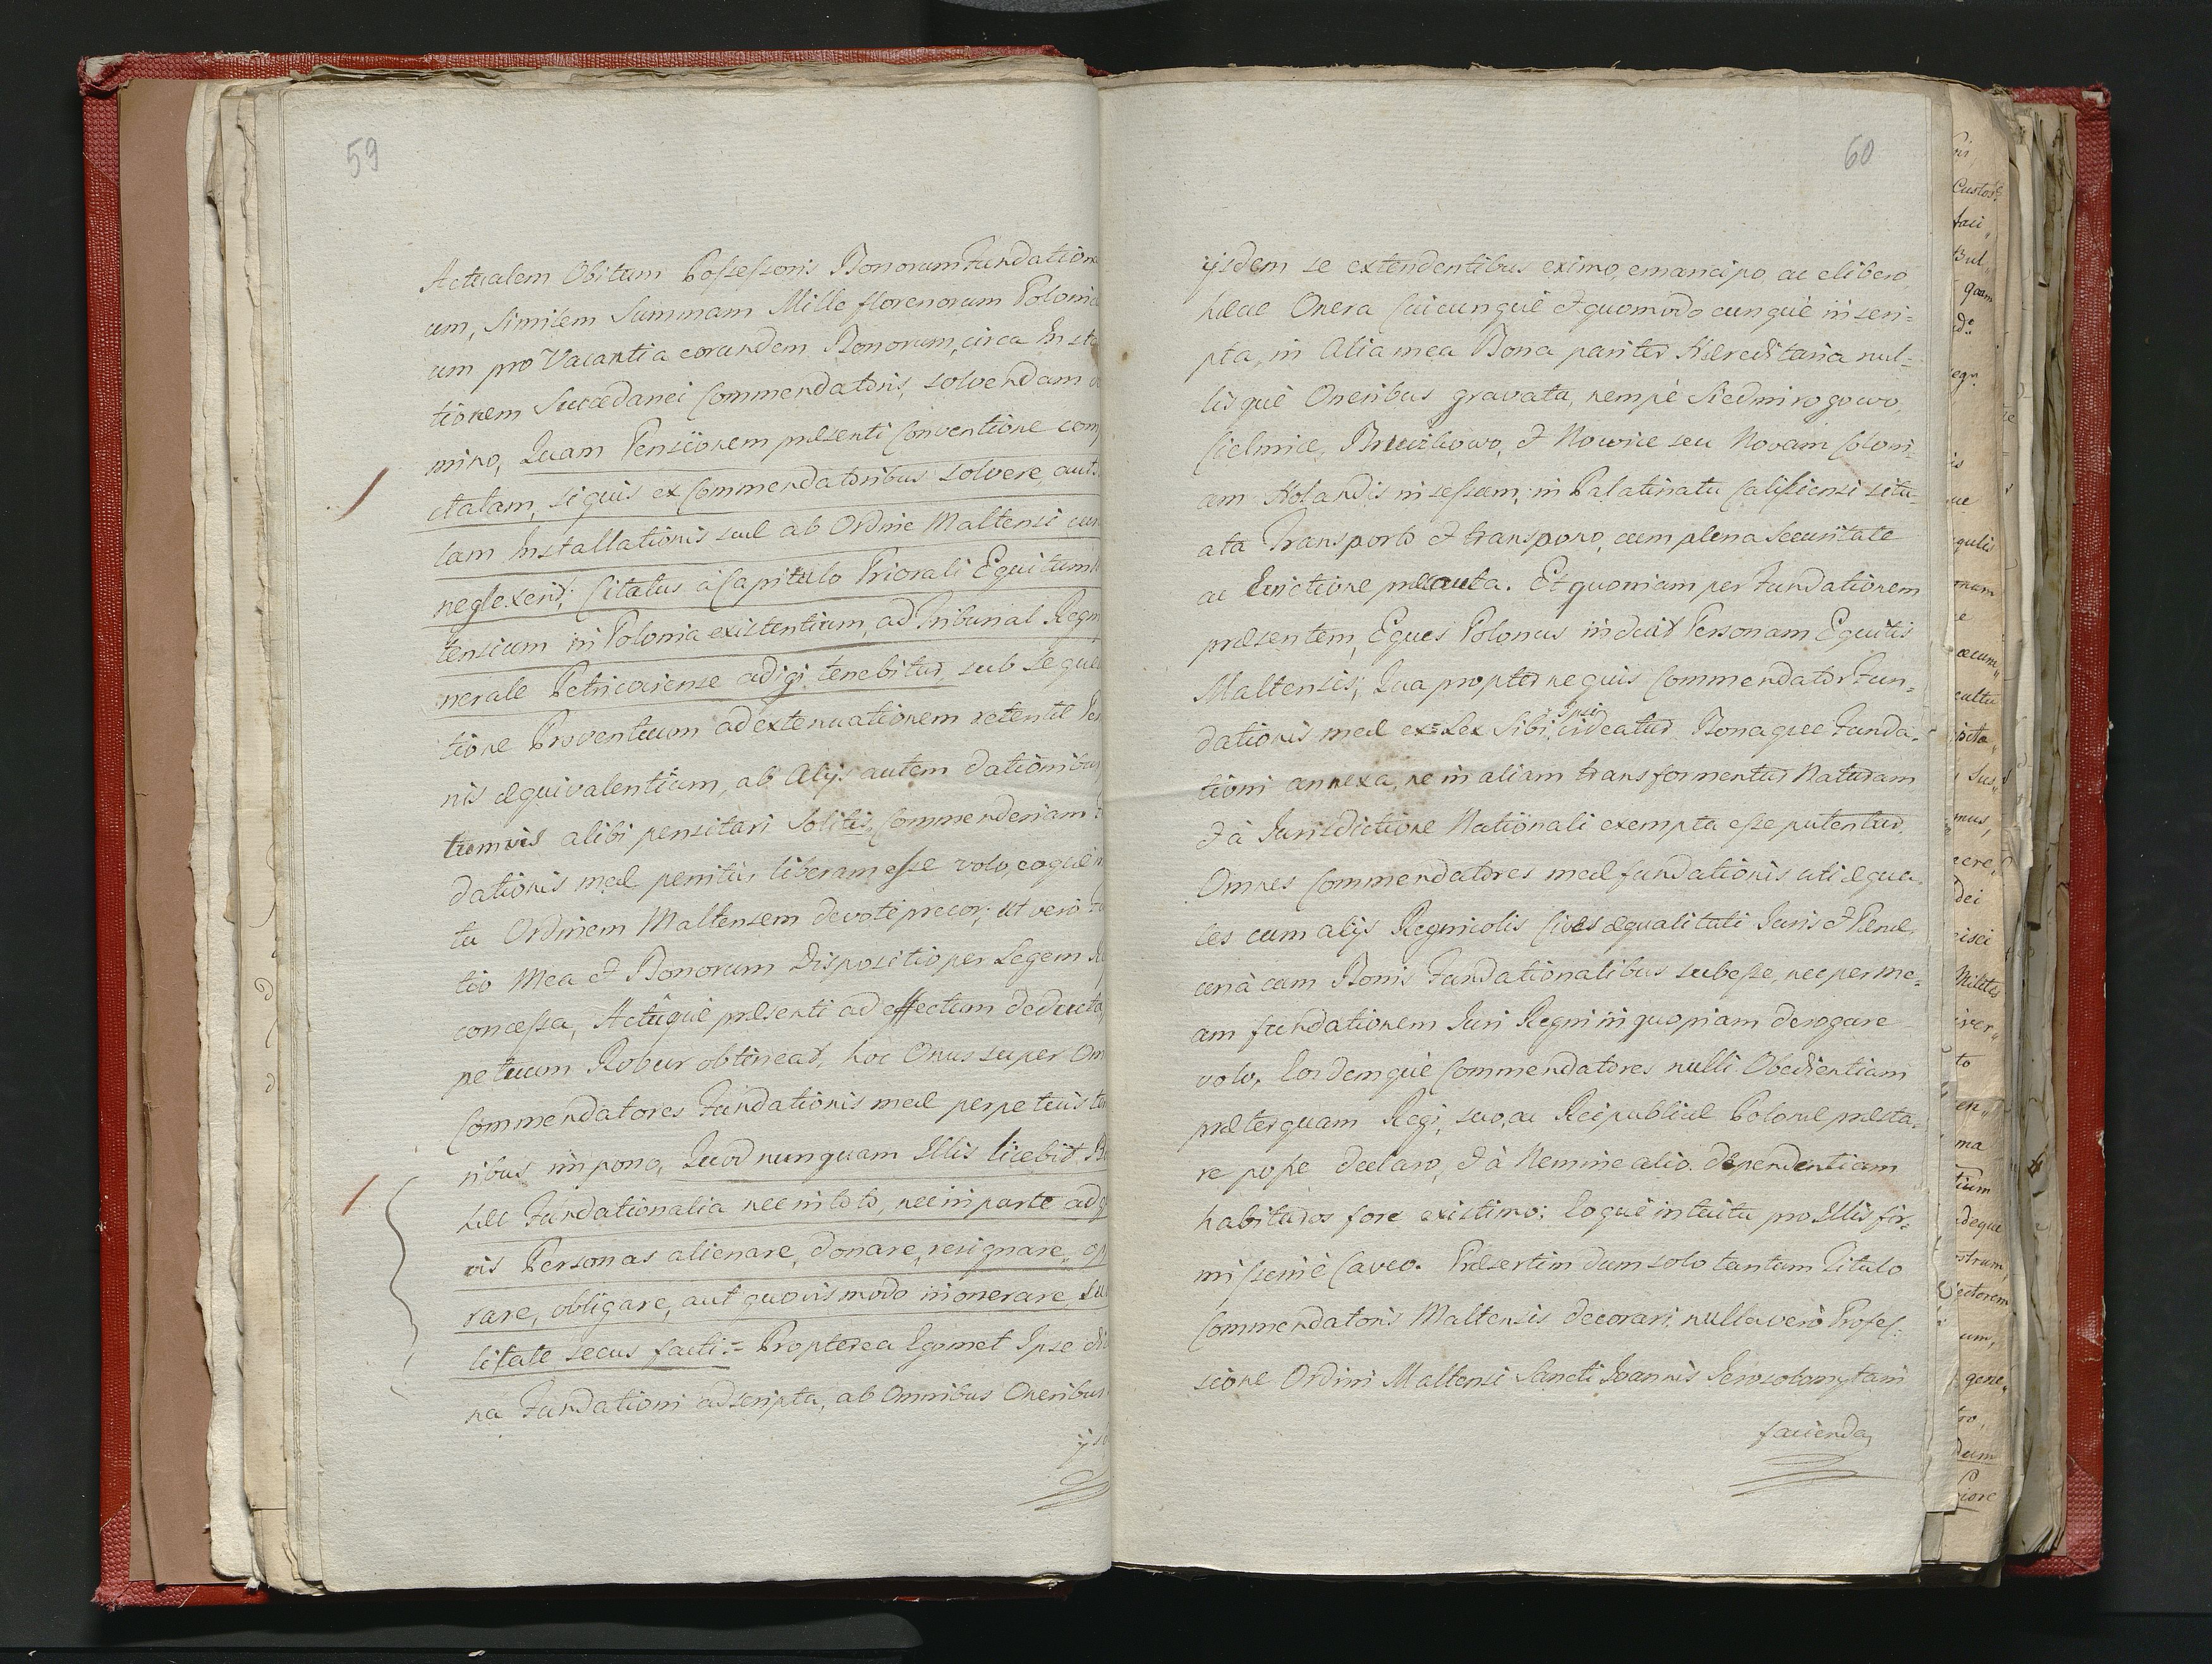 59
Actualem Obitum Possessoris Bonorum Fundation
um, Similem Summam Mille florenorum Poloni
um pro Vacantia eorundem Bonorum, circa Insta
tionem Succedanei Commendatoris, solvendam
mino, Quam Pensionem præsenti Conventione com
ctatam, si quis ex Commendatoribus solvere, aut
tam Installationis suæ ab Ordine Maltensi
neglexerit; Citatus à Capitulo Priorali Equitum
tensium in Polonia existentium, ad Tribunal Regn
nerale Petricoviense adigi tenebitur, sub seque
tione Proventuum ad extenuationem retentæ Pen
nis æquivalentium, ab Alijs autem dationibus
tumvis alibi pensitari Solitis, Commenderiam
dationis meæ penitus liberam esse volo, eoque in
tu Ordinem Maltensem devotè precor; ut verò
tio Mea et Bonorum Dispositio per Legem
concessa, Actuque præsenti ad effectum deducta
petuum Robur obtineat, hoc Onus super Om
Commendatores Fundationis meæ perpetuis
ribus impono, Quod nunquam Illis licebit, B
hæc Fundationalia nec in toto, nec in parte ad
vis Personas alienare, donare, resignare, op
rare, obligare, aut quovis modo inonerare, su
litate secus facti:= Propterea Egomet Ipse
na Fundationi adscripta, ab Omnibus Oneribus
60
ijsdem se extendentibus eximo, emancipo, ac elibero,
hæc Onera Cuicunque et quomodocunque inscri=
pta, in Alia mea Bona pariter Hæreditaria nul=
lisque Oneribus gravata, nempè Siedmirogowo,
Cielmice, Bruczkowo, et Nowice seu Novam Coloni=
am Holandis insessam, in Palatinatu Calissiensi situ=
ata Transporto et transpono, cum plena Securitate
ac Evictione præcauta. Et quoniam per Fundationem
præsentem, Eques Polonus induit Personam Equitis
Maltensis; Qua propter ne quis Commendator Fun=
dationis meæ ex=Lex Sibi Ipsi videatur Bonaque Funda=
tioni annexa, ne in aliam transformentur Naturam
et à Jurisdictione Nationali exempta esse putentur.
Omnes Commendatores meæ fundationis uti æqua=
les cum alijs Regnicolis Cives æqualitati Juris et Pœnæ,
unà cum Bonis Fundationalibus subesse, nec per me=
am fundationem Juri Regni in quopiam derogare
volo, Eosdemque Commendatores nulli Obedientiam
præterquam Regi, suo, ac Reipublicæ Polonæ præsta=
re posse declaro, et à Nemine alio dependentiam
habituros fore existimo; Eoque intuitu pro Illis fir=
missimè Caveo. Præsertim dum solo tantum Titulo
Commendatoris Maltensis decorari, nulla verò Profes=
sione Ordini Maltensi Sancti Joannis Jerosolomytani
facienda,